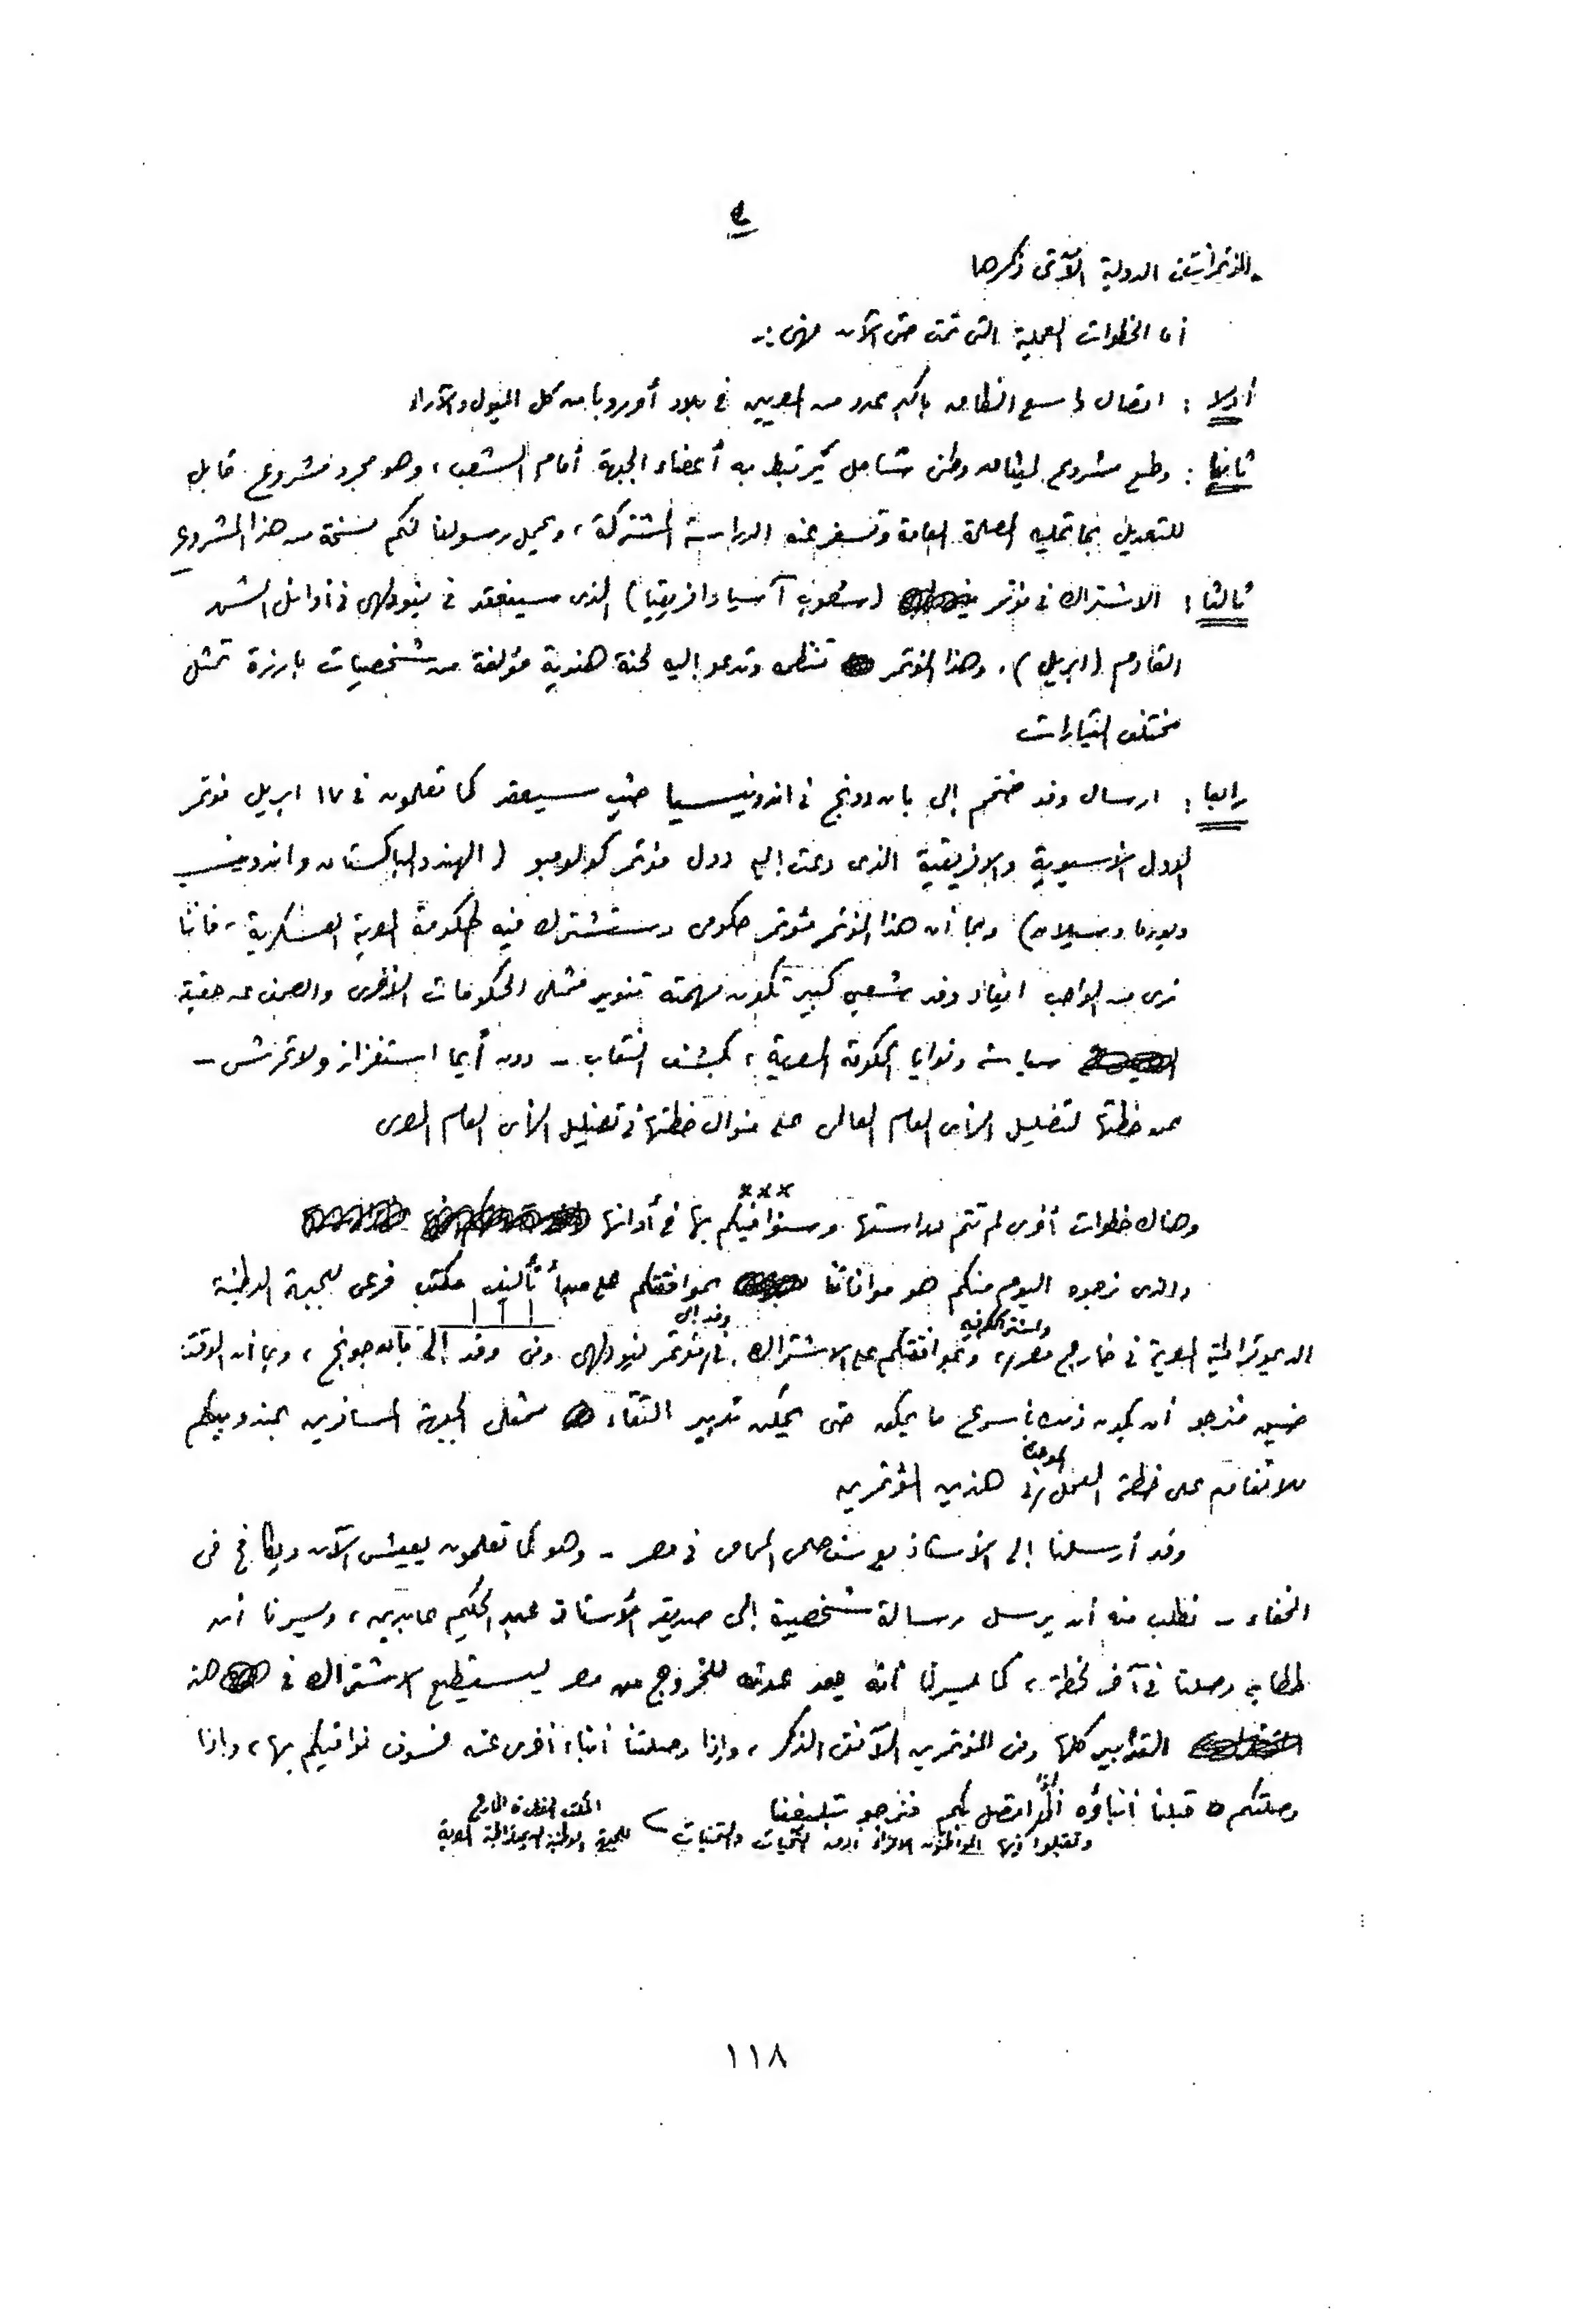 ٤
المؤتمرات الدولية الآتى ذكرها
أما الخطوات العملية التى تمت حتى الآن فهى :-
أولا : اتصال واسع النطاق بأكبر عدد من المصريين فى بلاد أوروبا من كل الميول والآراء
ثانيا : وضع مشروع لميثاق وطنى شامل يرتبط به أعضاء الجبهة أمام الشعب ، وهو مجرد مشروع قابل
للتعديل بما تمليه المصلحة العامة وتسفر عنه الدراسة المشتركة ، ويحمل رسولنا لكم نسخة من هذا المشروع
ثالثا : الاشتراك فى مؤتمر (شعوب آسيا وافريقيا) الذى سينعقد فى نيودلهى فى أوائل الشهر
القادم (ابريل) . وهذا المؤتمر تنظمه وتدعو إليه لجنة هندية مؤلفة من شخصيات بارزة تمثل
مختلف التيارات
رابعا : ارسال وفد ضخم إلى باندونج فى اندونيسيا حيث سيعقد كما تعلمون فى ١٧ ابريل مؤتمر
الدول الأسيوية والافريقية الذى دعت إليه دول مؤتمر كولومبو ( الهند والباكستان واندونيسيا
وبورما وسيلان) وبما أن هذا المؤتمر مؤتمر حكومى وستشترك فيه الحكومة المصرية العسكرية ، فاننا
نرى من الواجب ايفاد وفد شعبى كبير تكون مهمته تنوير ممثلى الحكومات الأخرى والصحف عن حقيقة
سياسة ونوايا الحكومة المصرية ، لكشف النقاب - دون أيما استفزاز ولا تحرش -
عن خطتها لتضليل الرأى العام العالمى على منوال خطتها فى تضليل الرأى العام المصرى
×××
وهناك خطوات أخرى لم تتم دراستها وسنوافيكم بها فى أوانها
والذى نرجوه اليوم منكم هو موافاتنا بموافقتكم على مبدأ تأليف مكتب فرعى للجبهة الوطنية
الديموقراطية المصرية فى خارج مصر واشتراككم فيه ، وبموافقتكم على الاشتراك فى وفد إلى مؤتمر نيودلهى وفى وفد إلى باندونج ، وبما أن الوقت
ضيق فنرجو أن يكون ذلك بأسرع ما يمكن حتى يمكن تدبير التقاء ممثلى الجبهة المسافرين بمندوبيكم
للاتفاق على خطة العمل الموحدة فى هذين المؤتمرين
وقد أرسلنا إلى الأستاذ يوسف حلمى المحامى فى مصر - وهو كما تعلمون يعيش الآن ويكافح فى
الخفاء - نطلب منه أن يرسل رسالة شخصية إلى صديقه الأستاذ عبد الحكيم عابدين ، ويسرنا أن
خطابه وصلنا فى آخر لحظة ، كما يسرنا أنه يعد عدته للخروج من مصر ليستطيع الاشتراك فى هذه
التدابير كلها وفى المؤتمرين الآنفى الذكر ، وإذا وصلتنا أنباء أخرى عنه فسوف نوافيكم بها ، وإذا
وصلتكم قبلنا أنباؤه أو اتصل بكم فنرجو تبليغنا
وتقبلوا أيها المواطنون الأعزاء أصدق التحيات والتمنيات
للجبهة الوطنية الديمقراطية المصرية
١١٨